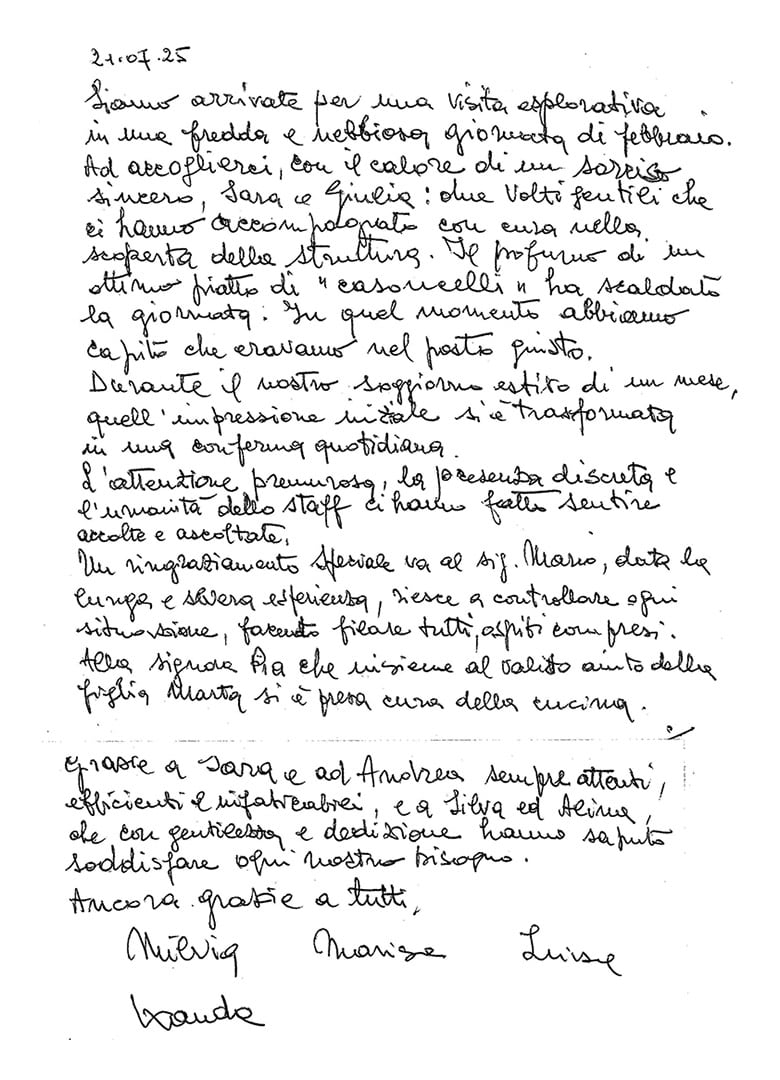 21.07.25
Siamo arrivate per una visita esplorativa
in una fredda e nebbiosa giornata di febbraio.
Ad accoglierci, con il calore di un sorriso
sincero, Sara e Giulia: due volti gentili che
ci hanno accompagnato con cura nella
scoperta della struttura. Il profumo di un
ottimo piatto di "casoncelli" ha scaldato
la giornata. In quel momento abbiamo
capito che eravamo nel posto giusto.
Durante il nostro soggiorno estivo di un mese,
quell'impressione iniziale si è trasformata
in una conferma quotidiana.
L'attenzione premurosa, la presenza discreta e
l'umanità dello staff ci hanno fatto sentire
accolte e ascoltate.
Un ringraziamento speciale va al sig. Mario, data la
lunga e severa esperienza, riesce a controllare ogni
situazione, facendo filare tutti, ospiti compresi.
Alla signora Pia che insieme al valido aiuto della
figlia Marta si è presa cura della cucina.
Grazie a Sara e ad Andrea sempre attenti,
efficienti e infaticabili, e a Silva ed Alina,
che con gentilezza e dedizione hanno saputo
soddisfare ogni nostro bisogno.
Ancora grazie a tutti,
Milvia Marisa Luisa
Wanda